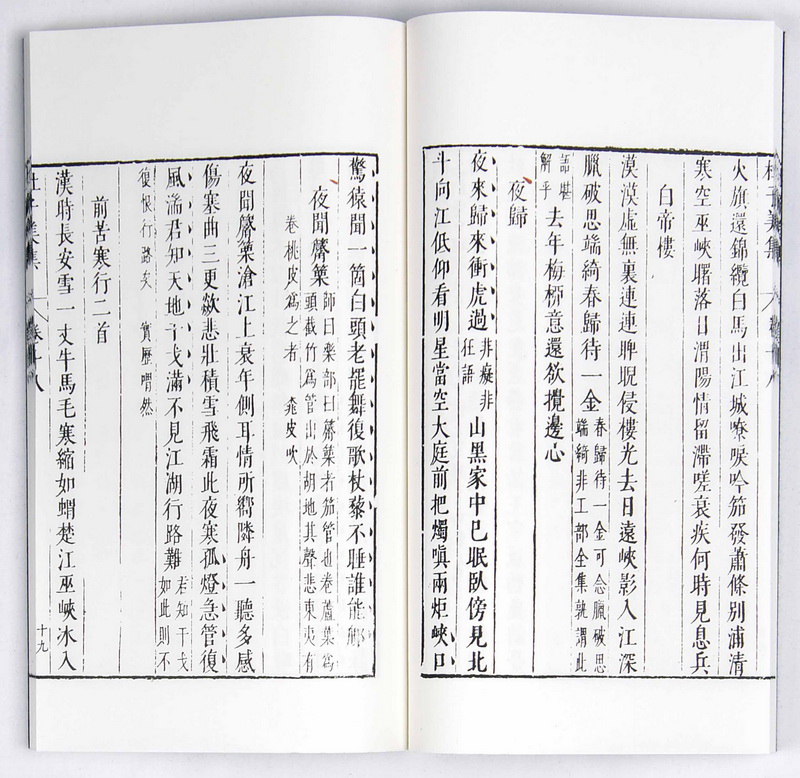 火旗還錦纜白馬出江城嘹唳吟笳發蕭條別浦清
寒空巫峽曙落日渭陽情留滯嗟衰疾何時見息兵
白帝樓
漠漠虛無裏連連睥睨侵樓光去日遠峽影入江深
臘破思端綺春歸待一金春歸待一金可念臘破思
端綺非工部全集孰謂此
語堪
解乎去年梅栁意還欲攪邊心
夜歸
夜來歸來衝虎過非癡非
狂語山黑家中已眠臥傍見北
斗向江低仰看明星當空大庭前把燭嗔兩炬峽口
驚猿聞一箇白頭老罷舞復歌杖藜不睡誰能那
夜聞觱篥師曰樂部曰觱篥者笳管也卷蘆葉爲
頭截竹爲管出於胡地其聲悲東夷有
卷桃皮爲之者
夜聞觱篥滄江上衰年側耳情所嚮隣舟一聽多感
傷塞曲三更歘悲壯積雪飛霜此夜寒孤燈急管復
風湍君知天地干戈滿不見江湖行路難若知干戈
如此則不
復恨行路矣 實歷喟然
前苦寒行二首
漢時長安雪一丈牛馬毛寒縮如蝟楚江巫峽冰入
十九